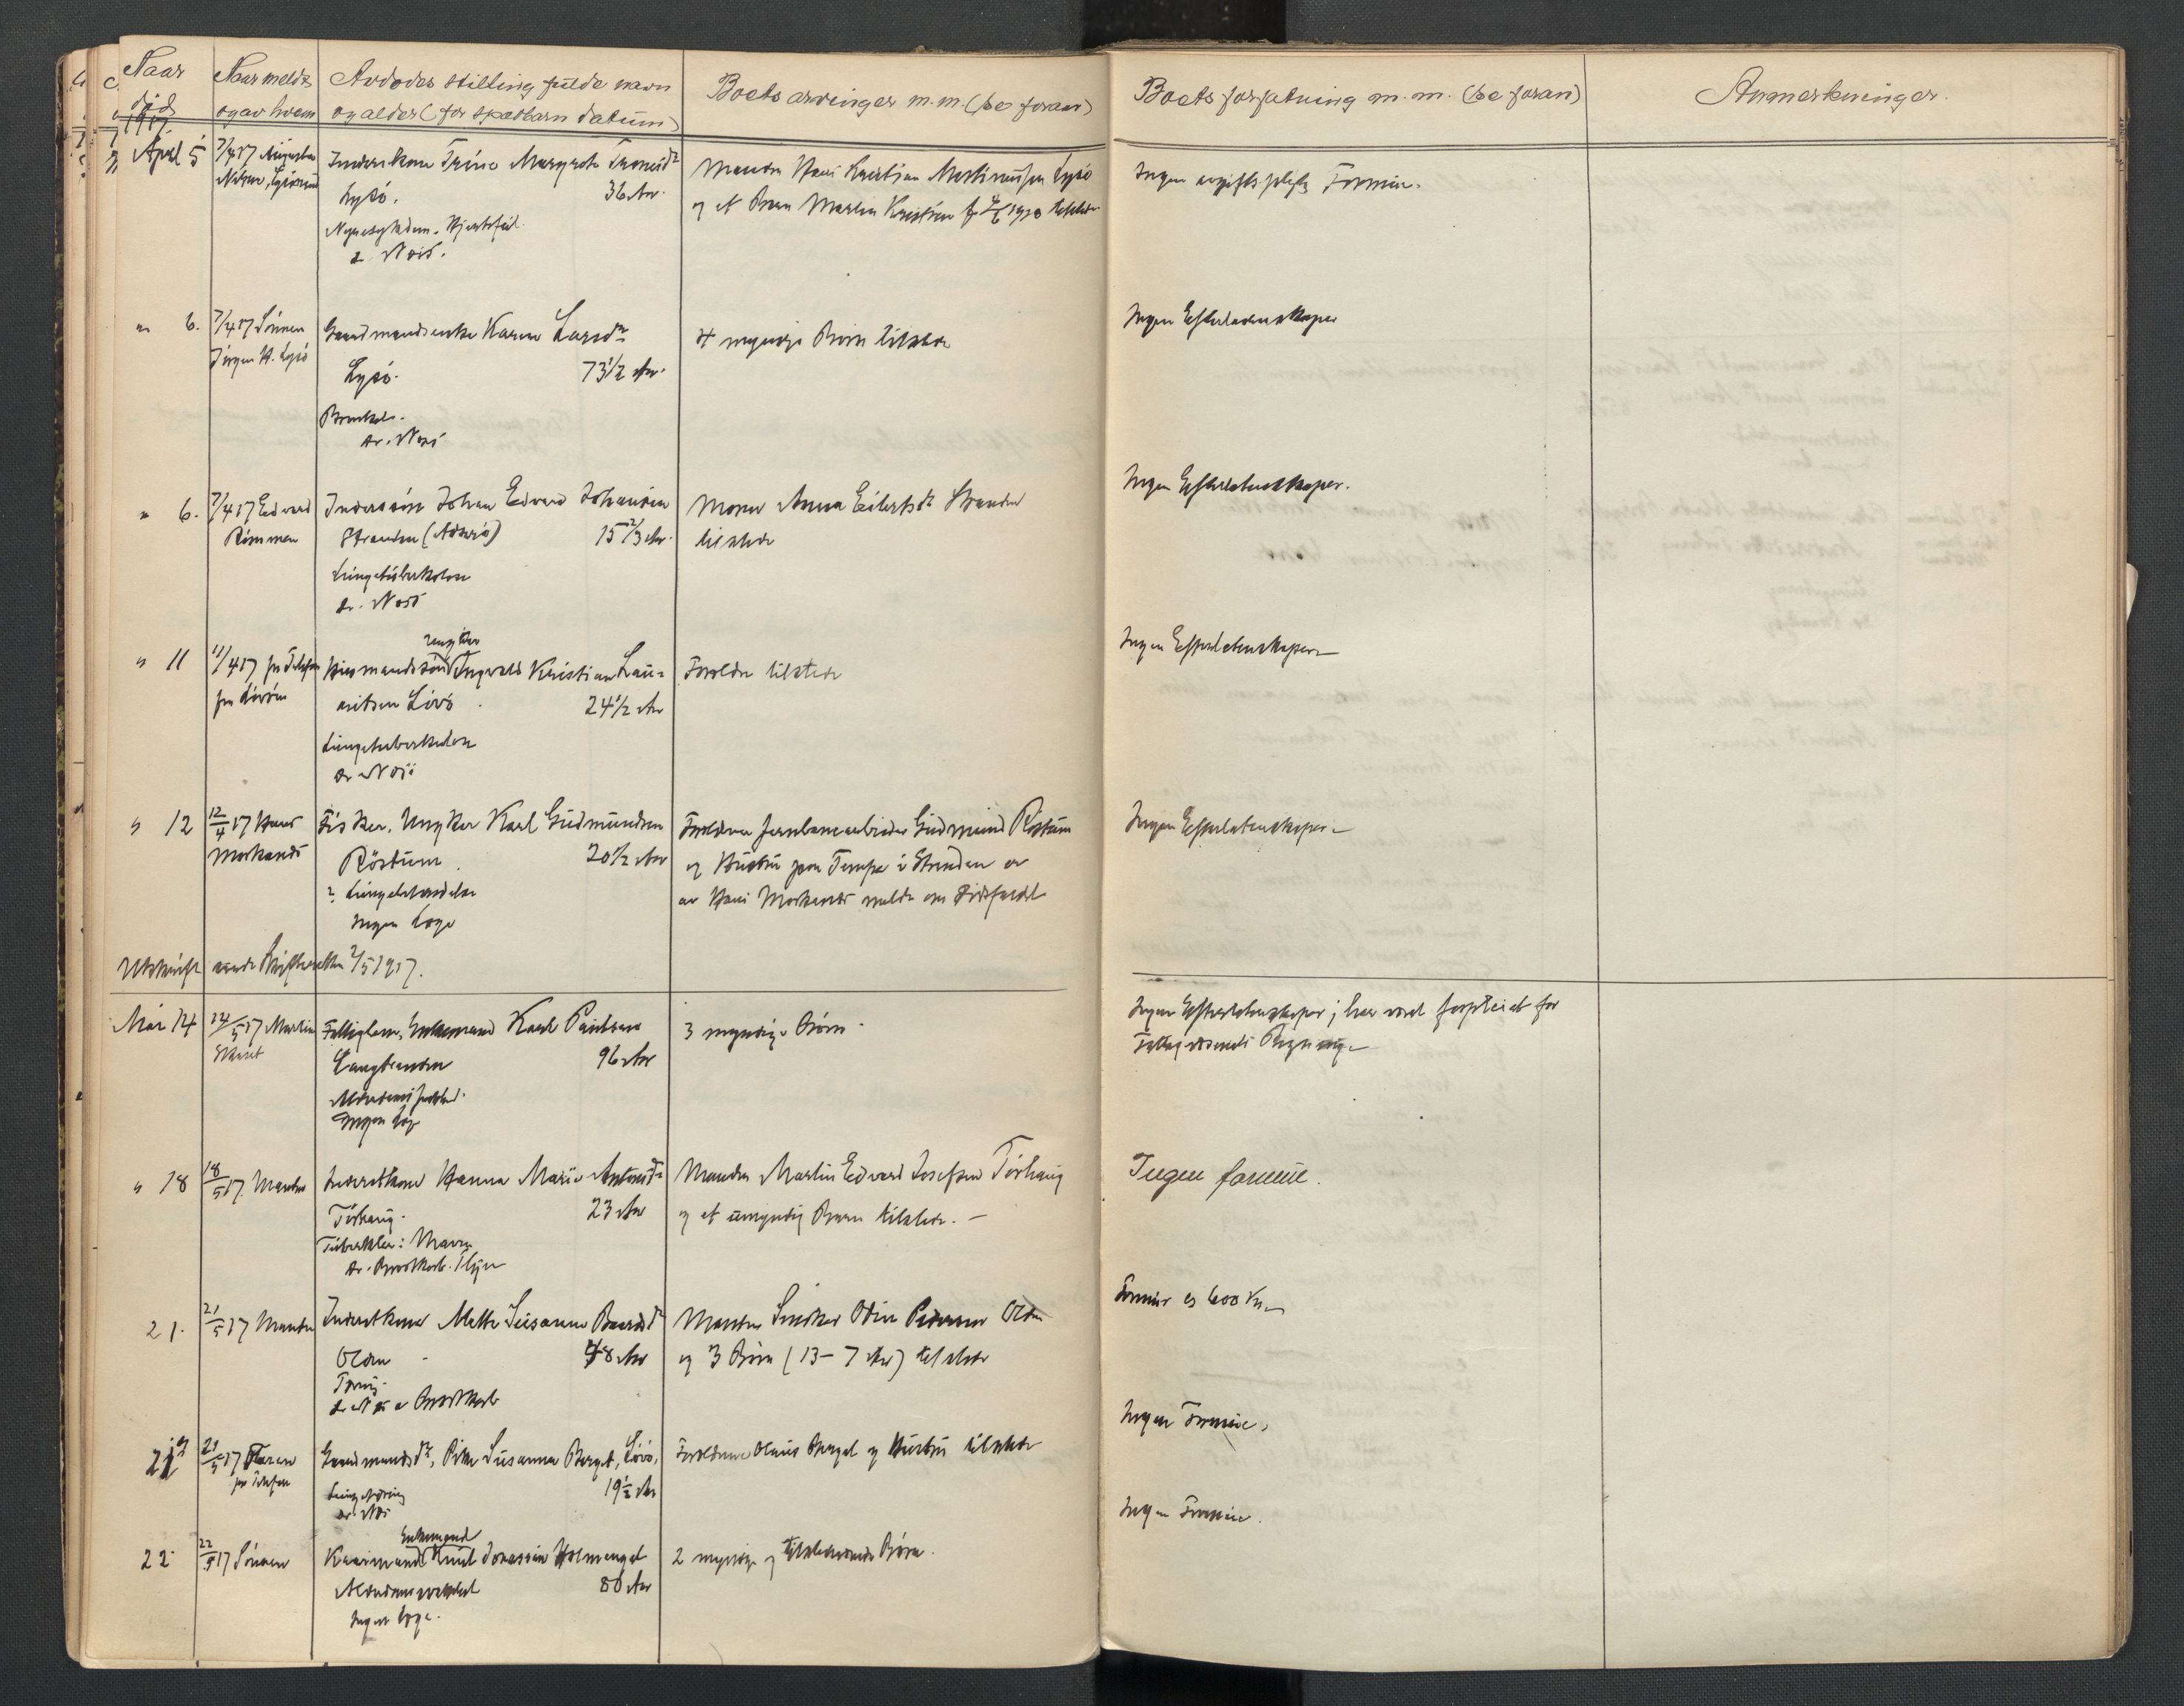 Naar
død
1917.
Naar meldt
og av hvem
Avdødes stilling fulde navn
og alder (for spædbarn datum)
Boets arvinger m.m. (se foran)
Boets forfatning m.m. (se foran)
Anmerkninger.
April 5
7/4 17 Augusta
Inderstkone Trine Margrete
Lysø.
36 Aar.
Nyresykdom. Hjertefeil
Manden Hans Kristian Martinussen Lysø
og et Barn Martin Kristian f. 1910 tilstede
Ingen avgiftspligtig Formue.
" 6.
7/4 17 Sønnen
Jørgen H. Lysø
Gaardmandsenke Karen Larsdtr
Lysø.
73 1/2 Aar.
4 myndige Børn tilstede
Ingen Efterladenskaper
" 6.
7/4 17 Edvard
Inderstsøn Johan Edvard Johansen
Stranden
15 2/3 Aar.
Lungetuberkulose
Moren Anna Eilertsdtr Stranden
tilstede
Ingen Efterladenskaper.
" 11
11/4 17 pr Telefon
Ungkar
Ingvald Kristian Lau-
ritsen Lövö
24 1/2 Aar
Lungetuberkulose
Forældre tilstede
Ingen Efterladenskaper
" 12
12/4 17 Hans
Morkands
Fisker, Ungkar Karl Gudmundsen
Röstum
20 1/2 Aar
? Lungebetændelse
Ingen Læge
Forældrene Jernbanearbeider Gudmund Röstum
og Hustru paa Tempe i Strinden er
av Hans Morkands meldt om Dödsfaldet
Ingen Efterladenskaper
Utskrift sendt Skifteretten 2/5 1917.
Mai 14
14/5 17 Martin
Fattiglem, Enkemand Karl Paulsen
96 Aar
Alderdomssvakhed.
Ingen Læge
3 myndige Börn.
Ingen Efterladenskaper; har været forpleiet for
Fattigvæsenets Regning
" 18
18/5 17. Manden
Inderstkone Hanna Marie Antonsdtr
Tørhaug.
23 Aar
Manden Martin Edvard Josefsen Tørhaug
og et umyndig Barn tilstede. —
Ingen formue.
21.
21/5 17 Manden
Inderstkone Mette Susanna Baardsdtr
Olden
48 Aar
Tæring.
Manden Snedker Odin Pedersen Olden
og 3 Börn (13 – 7 Aar) tilstede
Formue ca 600 Kr.
21
21/5 17 Faren
pr Telefon
Gaardmandsdtr, Pike Susanna Berget, Lövö,
19 1/2 Aar
Lungetæring
Forældrene Olaus Berget og Hustru tilstede
Ingen Formue.
22
22/5 17 Sønnen
Enkemand
Kaarmand Knut Jonassen Holmenget
80 Aar
Alderdomssvakhet
Ingen Læge.
2 myndige og tilstedeværende Börn.
Ingen Formue.